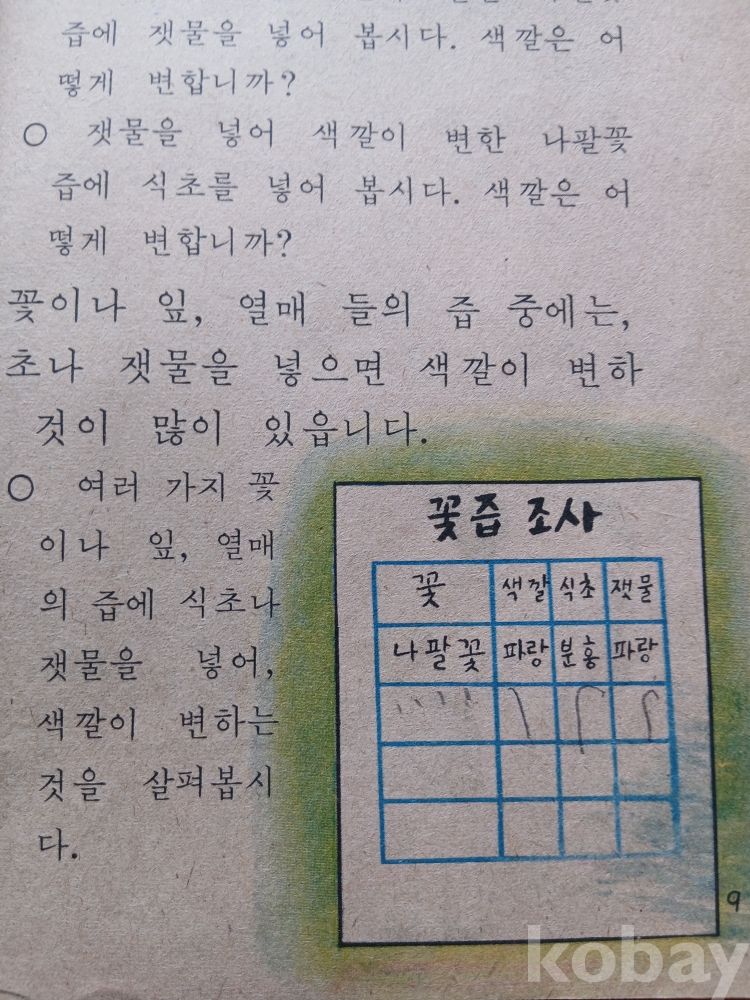 즙에 잿물을 넣어 봅시다. 색깔은 어
떻게 변합니까?
○ 잿물을 넣어 색깔이 변한 나팔꽃
즙에 식초를 넣어 봅시다. 색깔은 어
떻게 변합니까?
꽃이나 잎, 열매 들의 즙 중에는,
초나 잿물을 넣으면 색깔이 변하
것이 많이 있읍니다.
○ 여러 가지 꽃
이나 잎, 열매
의 즙에 식초나
잿물을 넣어,
색깔이 변하는
것을 살펴봅시
다.
꽃즙 조사
꽃 색깔 식초 잿물
나팔꽃 파랑 분홍 파랑
9
kobay